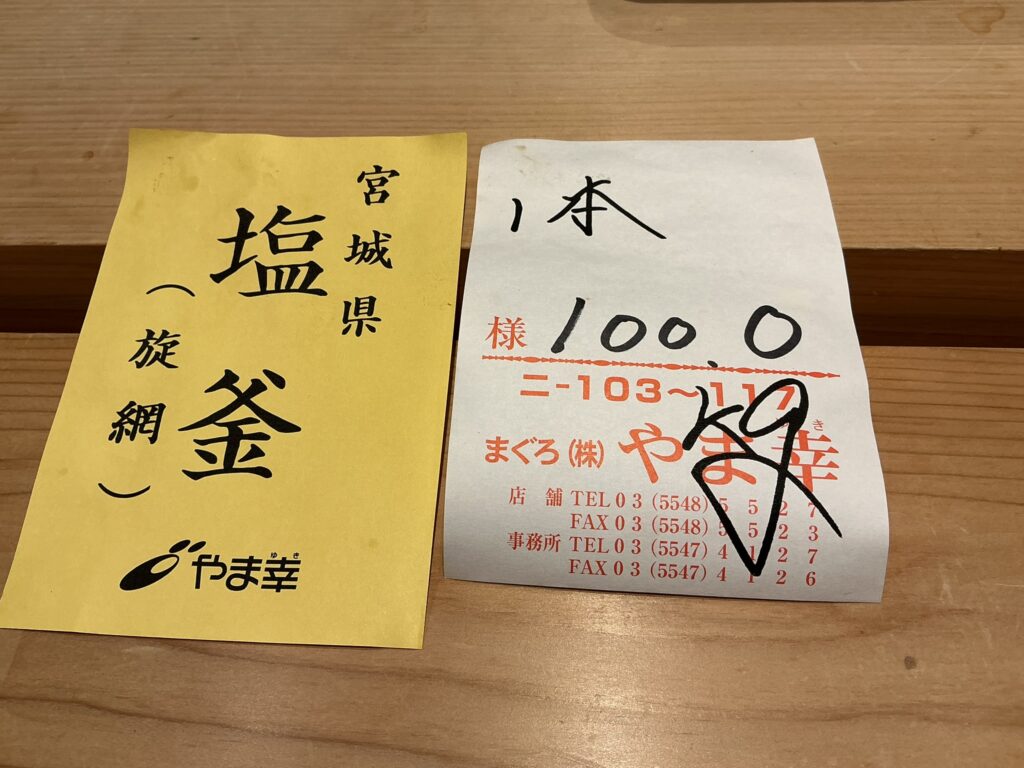 宮城県
塩釜
（旋網）
やま幸
ゆき
1本
様 100.0
kg
ニ-103～117
まぐろ（株）やま幸
き
店舗 TEL03（5548）5527
FAX03（5548）5523
事務所 TEL03（5547）4127
FAX03（5547）4126